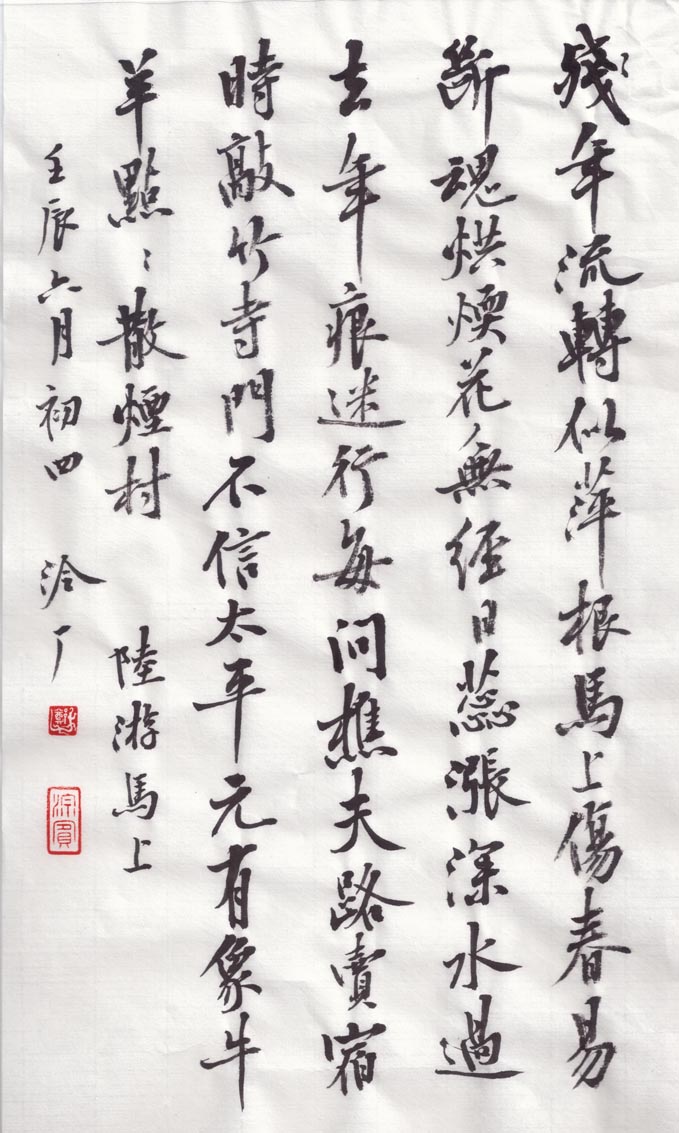 殘年流轉似萍根馬上傷春易
斷魂烘煗花無經日蕊漲深水過
去年痕迷行每問樵夫路賣宿
時敲竹寺門不信太平元有象牛
羊點〻散煙村 陸游馬上
壬辰六月初四 泠厂